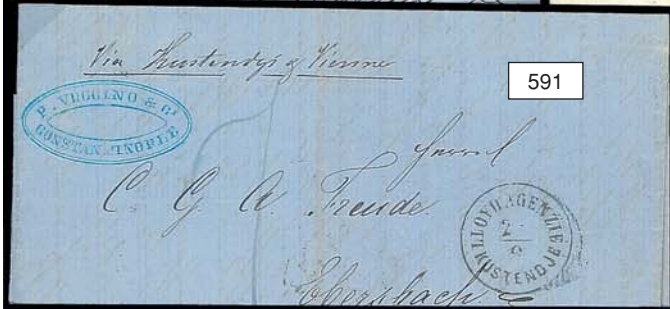 Via Kustendje & Vienne
591
P. VEGGINO & Cº
CONSTANTINOPLE
Herrn
C. G. A. Freude.
LLOYDAGENZIE
2
9
KUSTENDJE
Ebersbach